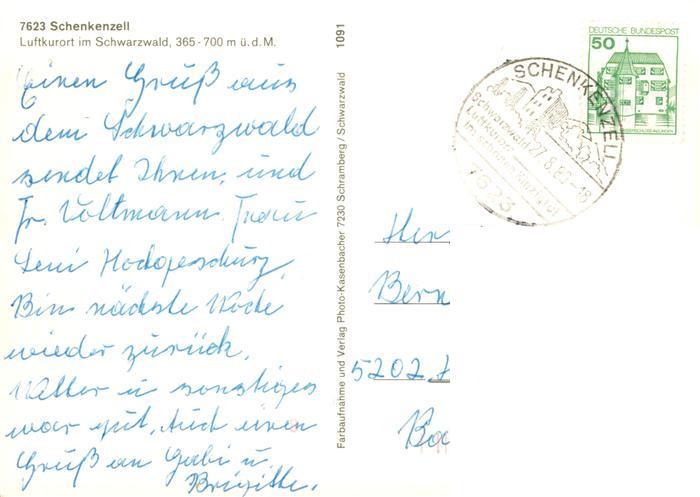 7623 Schenkenzell
Luftkurort im Schwarzwald, 365-700 m ü.d.M.
Einen Gruß aus
dem Schwarzwald
sendet Ihnen, und
Fr. Voltmann Frau
Hochgeschurz,
Bin nächste Woche
wieder zurück,
Wetter u sonstiges
war gut, Auch einen
Gruß an Gabi u.
Brigitte.
Farbaufnahme und Verlag Photo-Kasenbacher 7230 Schramberg / Schwarzwald
1091
DEUTSCHE BUNDESPOST
50
SCHENKENZELL
Schwarzwald 27.8.82-18
Luftkurort
im schönen Kinzigtal
7623
Her
Bern
5202